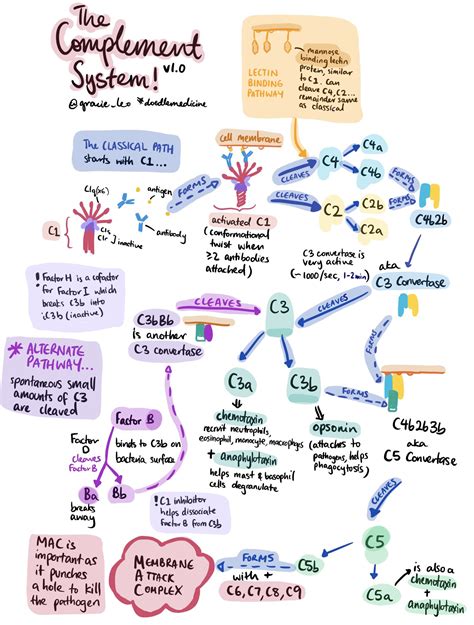 The
Complement
System! v1.0
@gracie_leo *doodlemedicine
LECTIN
BINDING
PATHWAY
- mannose
binding lectin
protein, similar
to C1. Can
cleave C4, C2...
remainder same
as classical
The CLASSICAL PATH
starts with C1...
cell membrane
C1q(x6)
antigen
FORMS
C1
C1s
C1r
inactive
antibody
activated C1
(conformational
twist when
≥2 antibodies
attached)
CLEAVES
C4
C4a
C4b
CLEAVES
C2
C2b
C2a
FORMS
C4b2b
C3 convertase is
very active
(~1000/sec, 1-2min)
aka
C3 Convertase
! Factor H is a cofactor
for Factor I which
breaks C3b into
iC3b (inactive)
CLEAVES
C3bBb
is another
C3 convertase
C3
CLEAVES
* ALTERNATE
PATHWAY...
spontaneous small
amounts of C3
are cleaved
C3a
C3b
FORMS
chemotaxin
recruit neutrophils,
eosinophil, monocyte, macrophages
+
anaphylotoxin
helps mast & basophil
cells degranulate
opsonin
(attaches to
pathogens, helps
phagocytosis)
C4b2b3b
aka
C5 Convertase
Factor B
Factor
D
cleaves
Factor B
binds to C3b on
bacteria surface
Ba
breaks
away
Bb
! C1 inhibitor
helps dissociate
Factor B from C3b
CLEAVES
C5
C5a
is also a
chemotaxin
+
anaphylotoxin
C5b
FORMS
with +
C6, C7, C8, C9
MEMBRANE
ATTACK
COMPLEX
MAC is
important as
it punches
a hole to kill
the pathogen